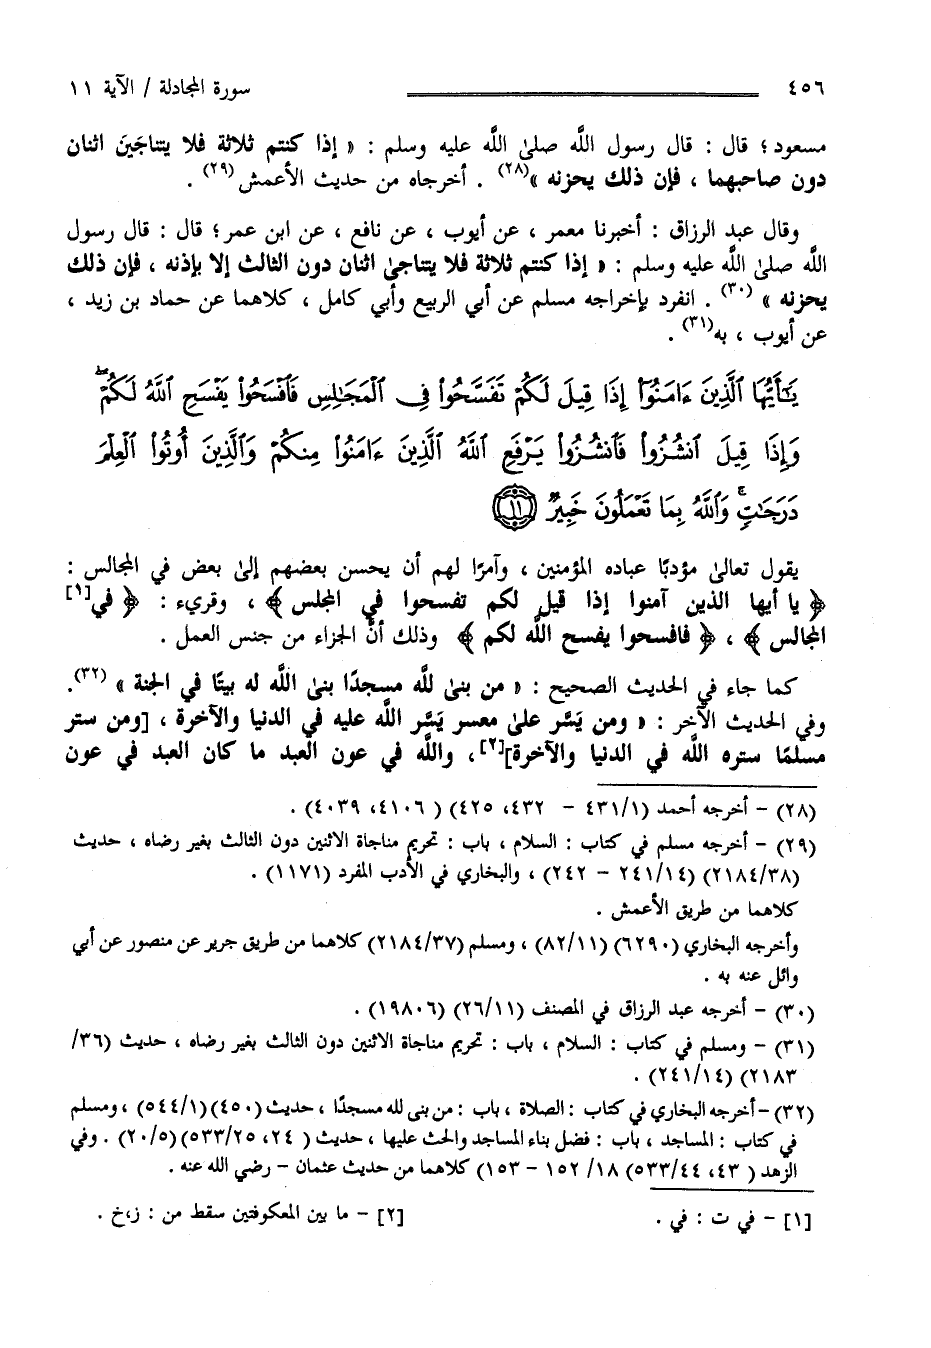 ٤٥٦ سورة المجادلة / الآية ١١
مسعود؛ قال : قال رسول اللَّه صلىٰ اللَّه عليه وسلم : « إذا كنتم ثلاثة فلا يتناجَينَ اثنان
دون صاحبهما ، فإن ذلك يحزنه »(٢٨) . أخرجاه من حديث الأعمش(٢٩) .
وقال عبد الرزاق : أخبرنا معمر ، عن أيوب ، عن نافع ، عن ابن عمر؛ قال : قال رسول
اللَّه صلىٰ اللَّه عليه وسلم : « إذا كنتم ثلاثة فلا يتناجىٰ اثنان دون الثالث إلا بإذنه ، فإن ذلك
يحزنه » (٣٠) . انفرد بإخراجه مسلم عن أبي الربيع وأبي كامل ، كلاهما عن حماد بن زيد ،
عن أيوب ، به(٣١) .
يَٰٓأَيُّهَا ٱلَّذِينَ ءَامَنُوٓا۟ إِذَا قِيلَ لَكُمْ تَفَسَّحُوا۟ فِى ٱلْمَجَٰلِسِ فَٱفْسَحُوا۟ يَفْسَحِ ٱللَّهُ لَكُمْ ۖ
وَإِذَا قِيلَ ٱنشُزُوا۟ فَٱنشُزُوا۟ يَرْفَعِ ٱللَّهُ ٱلَّذِينَ ءَامَنُوا۟ مِنكُمْ وَٱلَّذِينَ أُوتُوا۟ ٱلْعِلْمَ
دَرَجَٰتٍ ۚ وَٱللَّهُ بِمَا تَعْمَلُونَ خَبِيرٌ ١١
يقول تعالىٰ مؤدبًا عباده المؤمنين ، وآمرًا لهم أن يحسن بعضهم إلىٰ بعض في المجالس :
﴿ يا أيها الذين آمنوا إذا قيل لكم تفسحوا في المجلس ﴾ ، وقريء : ﴿ في[١]
المجالس ﴾ ، ﴿ فافسحوا يفسح اللَّه لكم ﴾ وذلك أنَّ الجزاء من جنس العمل .
كما جاء في الحديث الصحيح : « من بنىٰ للَّه مسجدًا بنىٰ اللَّه له بيتًا في الجنة » (٣٢).
وفي الحديث الآخر : « ومن يَسَّر علىٰ معسر يَسَّر اللَّه عليه في الدنيا والآخرة ، [ومن ستر
مسلمًا ستره اللَّه في الدنيا والآخرة][٢]، واللَّه في عون العبد ما كان العبد في عون
(٢٨) – أخرجه أحمد (٤٣١/١ – ٤٣٢، ٤٢٥) ( ٤١٠٦، ٤٠٣٩) .
(٢٩) – أخرجه مسلم في كتاب : السلام ، باب : تحريم مناجاة الاثنين دون الثالث بغير رضاه ، حديث
(٢١٨٤/٣٨) (٢٤١/١٤ – ٢٤٢) ، والبخاري في الأدب المفرد (١١٧١) .
كلاهما من طريق الأعمش .
وأخرجه البخاري (٦٢٩٠) (٨٢/١١) ، ومسلم (٢١٨٤/٣٧) كلاهما من طريق جرير عن منصور عن أبي
وائل عنه به .
(٣٠) – أخرجه عبد الرزاق في المصنف (٢٦/١١) (١٩٨٠٦) .
(٣١) – ومسلم في كتاب : السلام ، باب : تحريم مناجاة الاثنين دون الثالث بغير رضاه ، حديث (٣٦/
٢١٨٣) (٢٤١/١٤) .
(٣٢) –أخرجه البخاري في كتاب : الصلاة ، باب : من بنى لله مسجدًا ، حديث (٤٥٠)(٥٤٤/١) ، ومسلم
في كتاب : المساجد ، باب : فضل بناء المساجد والحث عليها ، حديث ( ٢٤، ٥٣٣/٢٥)(٢٠/٥) . وفي
الزهد ( ٤٣، ٥٣٣/٤٤) ١٨/ ١٥٢ – ١٥٣) كلاهما من حديث عثمان – رضي الله عنه .
[١] – في ت : في . [٢] – ما بين المعكوفتين سقط من : ز،خ .